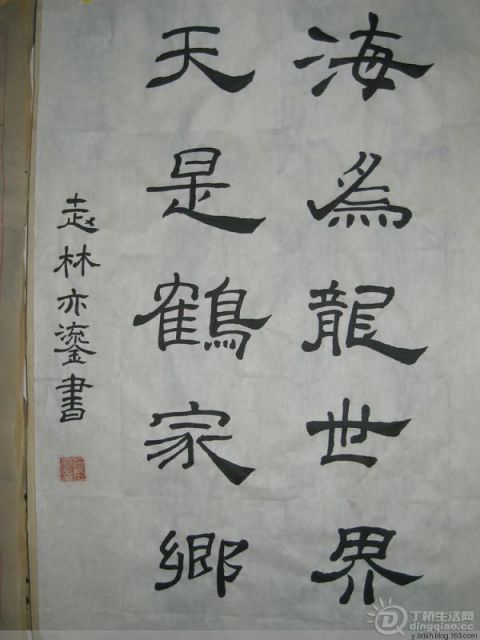 海為龍世界
天是鶴家鄉
林亦鎏書
丁桥生活网
dingqiao.cc
y.bdsh.blog.163.com